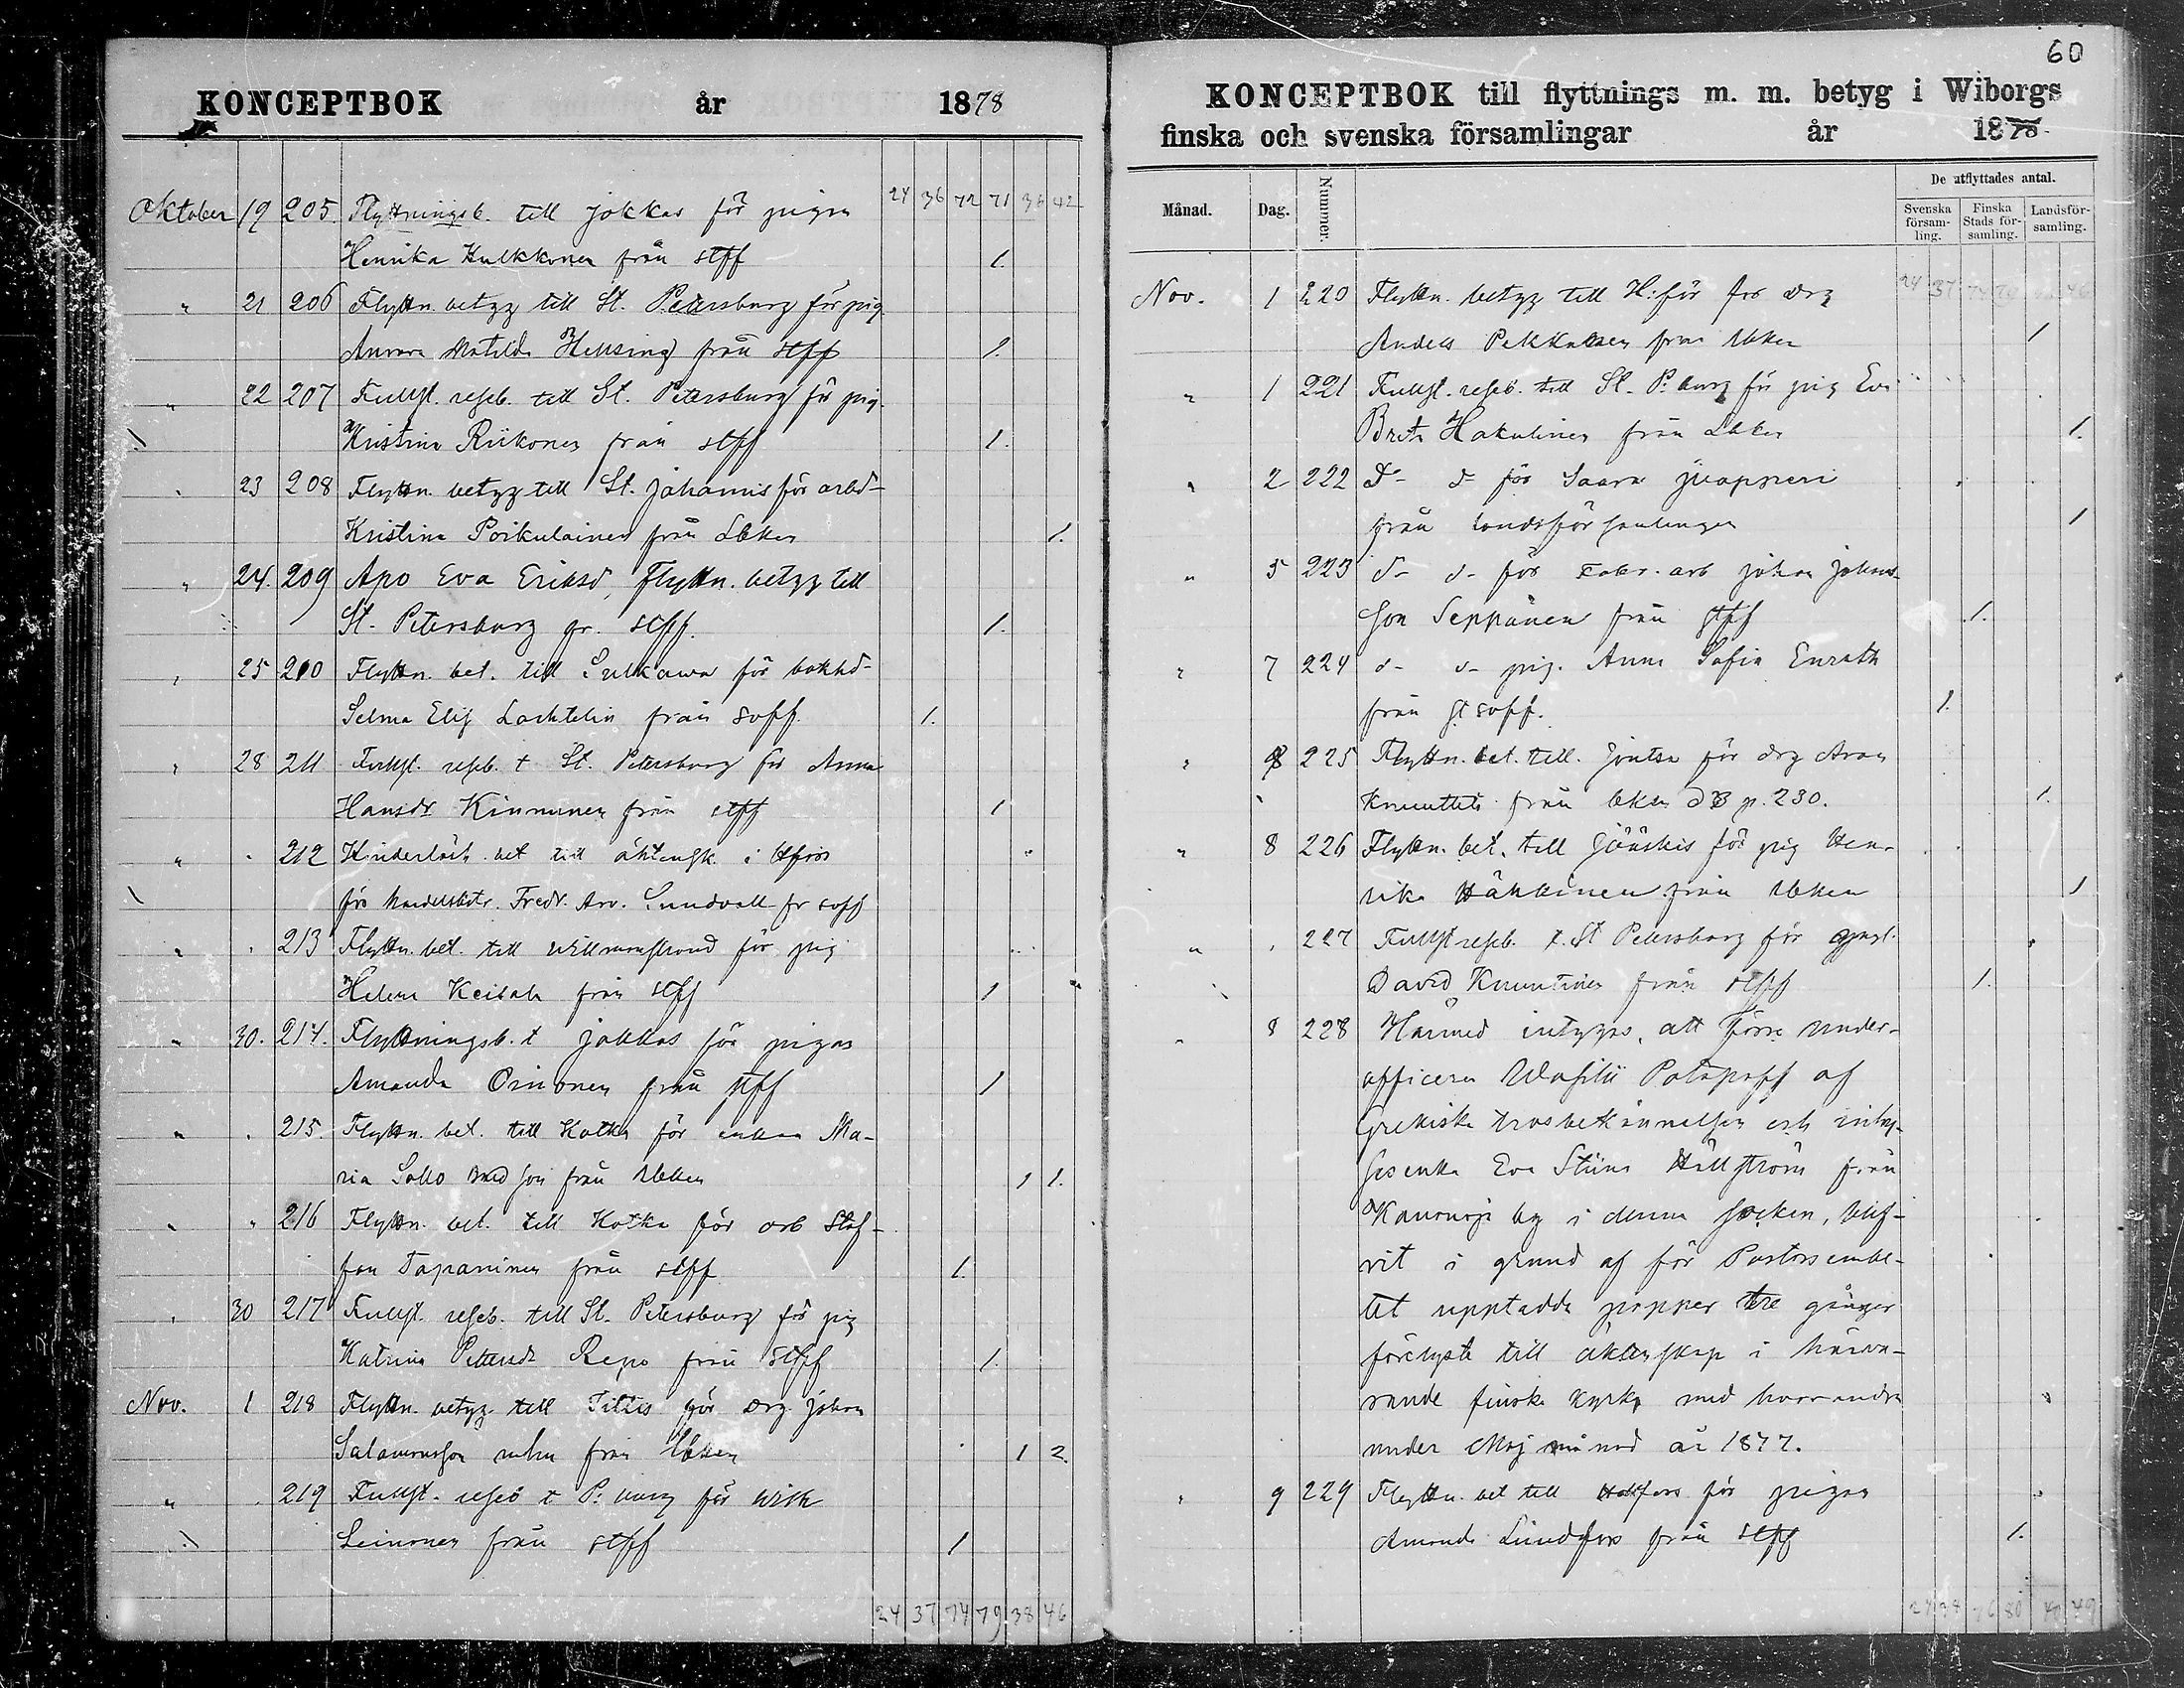 KONCEPTBOK år 1878
24 36 72 71 36 42
Oktober 19 205. Flyttningsb. till Jokkas för pigan
Henrika Kulkkonen från stff 1.
" 21 206 Flyttn. betyg till St. Petersburg för pig.
Aurora Matilda Helsing från stff 1.
" 22 207 Fullst. reseb. till St. Petersburg för pig.
Kristina Riikonen från stff 1.
" 23 208 Flyttn. betyg till St. Johannis för arbd-
Kristina Poikulainen från Lbken 1.
" 24. 209 Apo Eva Eriksd, Flyttn. betyg till
St. Petersburg fr. stff. 1.
" 25 210 Flyttn. bet. till Sulkawa för bokhd-
Selma Elis Lachtelin från soff. 1.
" 28 211 Fullst. reseb. t St. Petersburg för Anna
Hansdr Kinnunen från stff 1
" " 212 Hinderlösh. bet till äktensk i Hfors
för handelsbitr. Fredr. Arv. Sundvall fr soff
" " 213 Flyttn. bet. till Willmanstrand för pig
Helena från stff 1
" 30. 214. Flyttningsb. t Jokkas för pigan
Amanda Oinonen från stff 1
" " 215. Flyttn. bet. till Kotka för enkan Ma-
ria Sallo med son från Lbken 1 1.
" " 216 Flyttn. bet. till Kotka för arb Staf-
fan Tapaninen från stff 1.
" 30 217 Fullst. reseb. till St. Petersburg för pig
Katrina Petersdr Repo från stff 1.
Nov. 1 218 Flyttn. betyg till Sittis för drg Johan
Salamonsson från Lbken 1 2.
" " 219 Fullst. reseb t P:burg för Wilh
Leinonen från stff 1
24 37 74 79 38 46
60
KONCEPTBOK till flyttnings m. m. betyg i Wiborgs
finska och svenska församlingar år 1878.
Månad. Dag. Nummer. De utflyttades antal.
Svenska församling. Finska Stads församling. Landsförsamling.
24 37 74 79 46
Nov. 1 220 Flyttn. betyg till H:fors för drg
Anders Pekkalainen från Lbken 1
" 1 221 Fullst. reseb. till St. P:burg för pig Eva
Brita Hakulinen från Lbken 1.
" 2 222 D- d- för Saara Juopperi
från landsförsamlingen 1
" 5 223 d- d- för Fabr. arb Johan Johans-
son Seppänen från stff 1.
" 7 224 d- d- pig. Anna Sofia Enrath
från st soff. 1.
" 8 225 Flyttn. bet. till. Joutsa för drg Aron
från lbken d B p. 230. 1.
" 8 226 Flyttn. bet. till Jääskis för pig Hen-
rika Häkkinen från Lbken 1
" " 227 Fullst reseb. t. St Petersburg för
David Knuutinen från stff 1.
" 8 228 Härmed intygas, att förre under-
officeren Wasilii Potapoff af
Grekiska trosbekännelsen och
enka Eva Stina Hällström från
by i denna socken, blif-
vit i grund af för Pastorsembe-
tet uppteedda papper tre gånger
förelysta till äktenskap i härva-
rande finska kyrka med hvarandra
under Maj månad år 1877.
" 9 229 Flyttn. bet till för pigan
Amanda Lindfors från stff 1.
24 38 76 80 40 49